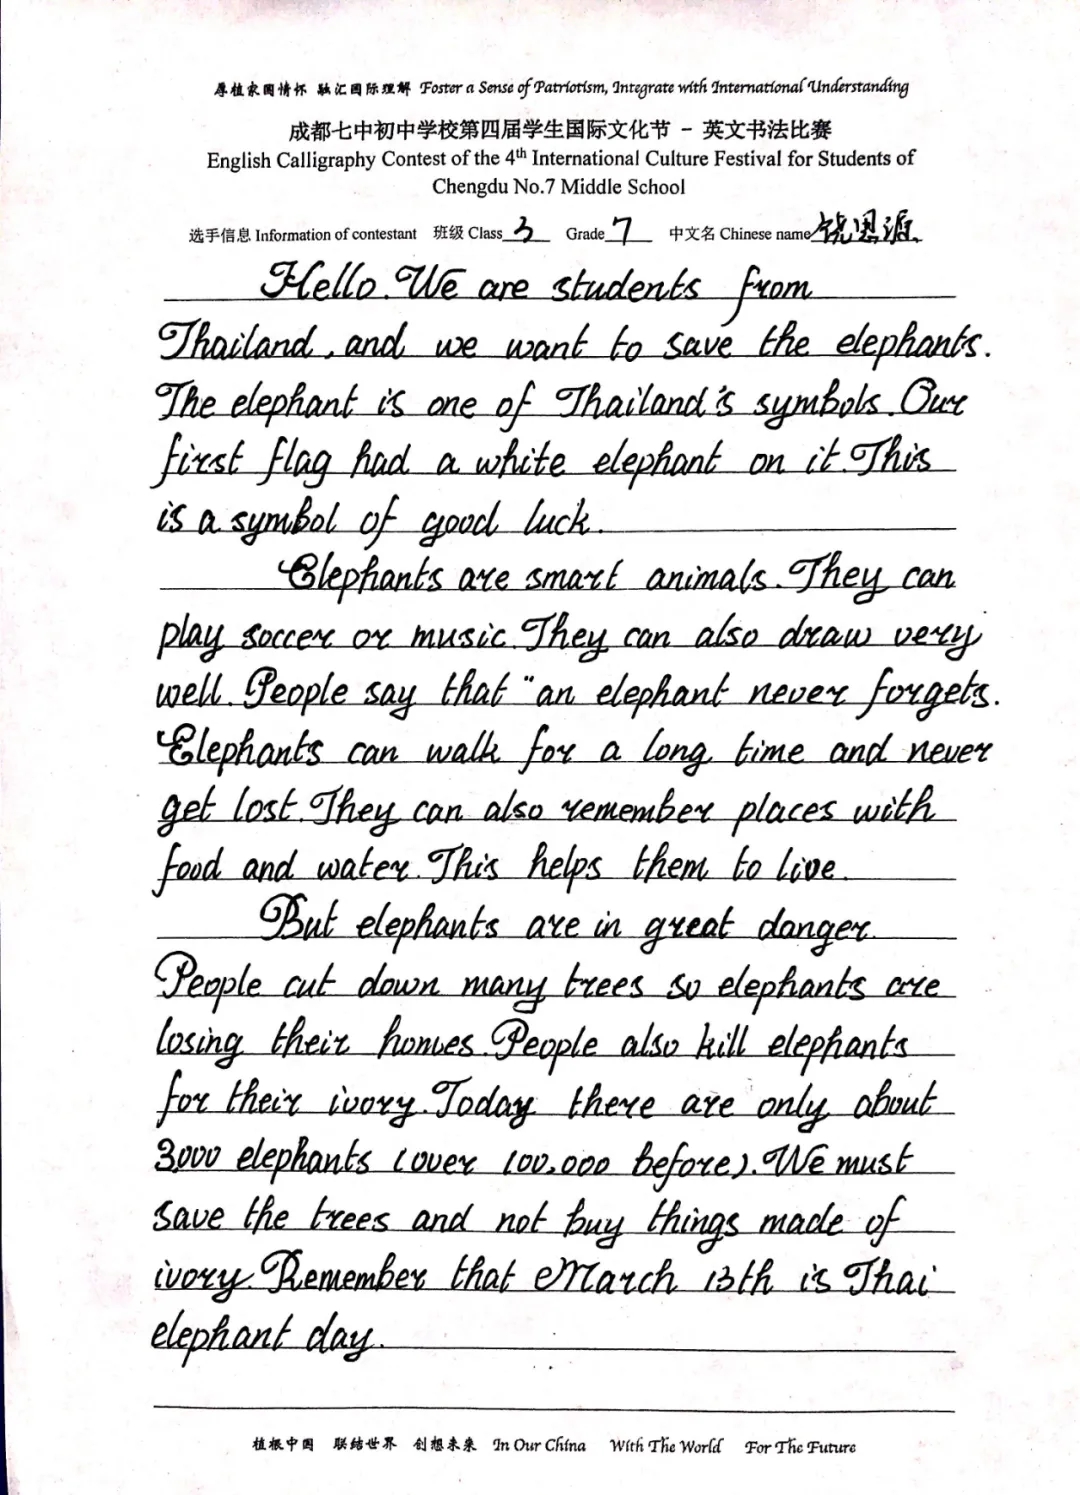 厚植家国情怀 融汇国际理解 Foster a Sense of Patriotism, Integrate with International Understanding
成都七中初中学校第四届学生国际文化节 - 英文书法比赛
English Calligraphy Contest of the 4th International Culture Festival for Students of
Chengdu No.7 Middle School
选手信息 Information of contestant 班级 Class 3 Grade 7 中文名 Chinese name 饶恩源
Hello. We are students from
Thailand, and we want to save the elephants.
The elephant is one of Thailand's symbols. Our
first flag had a white elephant on it. This
is a symbol of good luck.
Elephants are smart animals. They can
play soccer or music. They can also draw very
well. People say that "an elephant never forgets.
Elephants can walk for a long time and never
get lost. They can also remember places with
food and water. This helps them to live.
But elephants are in great danger.
People cut down many trees so elephants are
losing their homes. People also kill elephants
for their ivory. Today there are only about
3000 elephants (over 100,000 before). We must
save the trees and not buy things made of
ivory. Remember that March 13th is Thai
elephant day.
植根中国 联结世界 创想未来 In Our China With The World For The Future